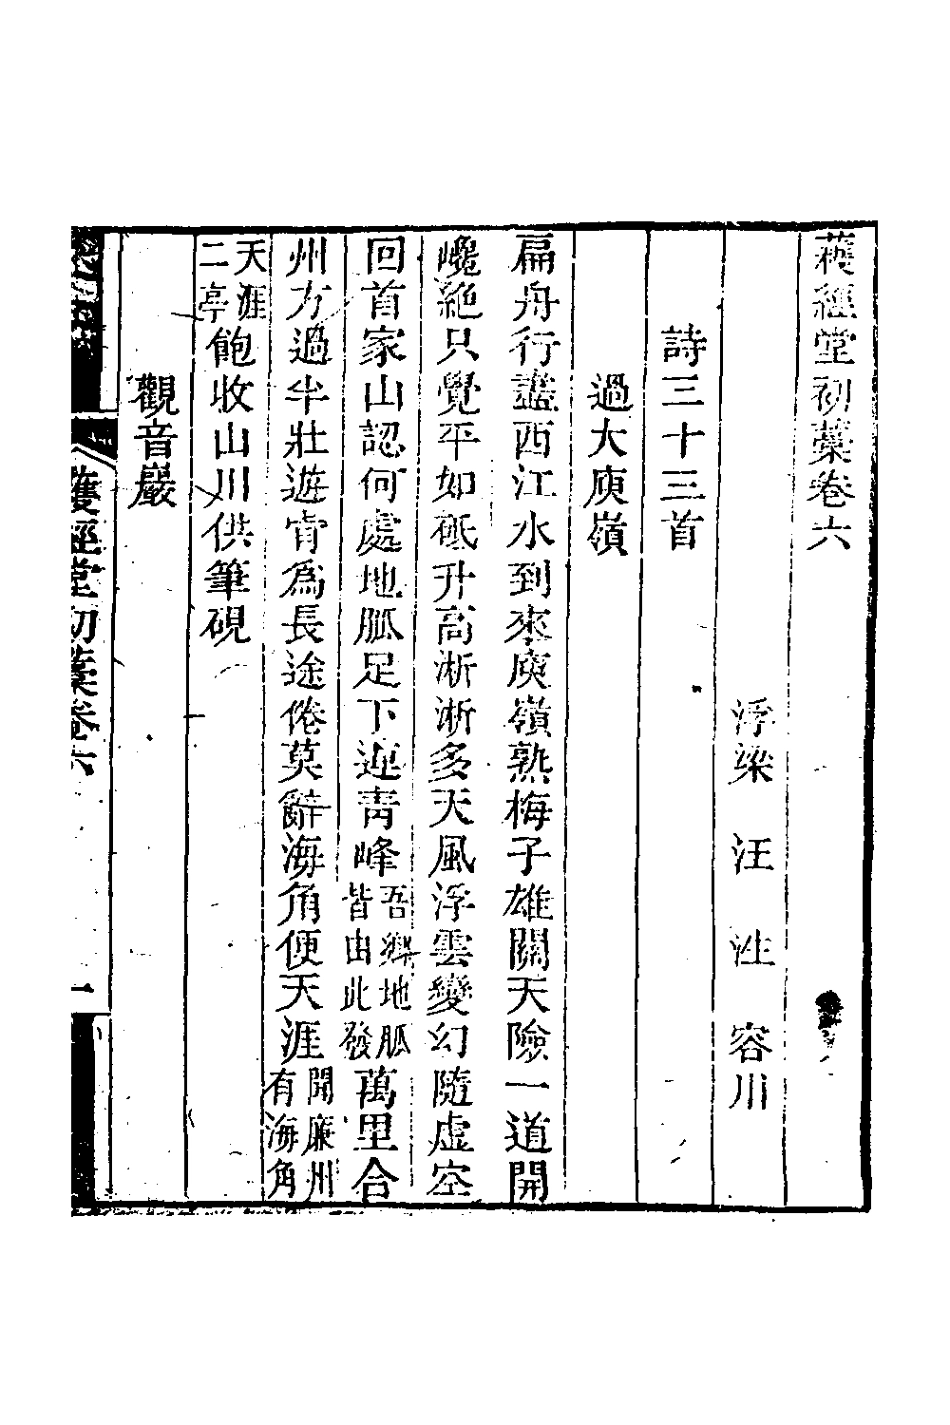 穫經堂初藳卷六
浮梁 汪 泩 容川
詩三十三首
過大庾嶺
扁舟行盡西江水到來庾嶺熟梅子雄關天險一道開
巉絶只覺平如砥升高漸漸多天風浮雲變幻隨虚空
回首家山認何處地脈足下迎青峰吾鄉地脈皆由此發萬里合
州方過半壯遊甯爲長途倦莫辭海角便天涯聞廉州有海角
天涯二亭飽收山川供筆硯
觀音巖
穫經堂初藳卷六
一